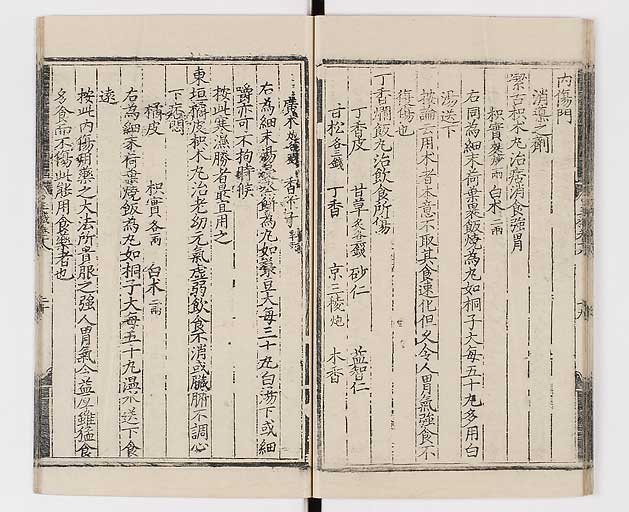 內傷門
消藥之劑
潔古枳朮丸治痞消食強胃
枳實麩炒一兩 白朮二兩
右同為細末荷葉裹飯燒為丸如桐子大每五十丸多用白
湯送下
按論云用朮者本意不取其食速化但久令人胃氣強食不
復傷也
丁香爛飯丸治飲食所傷
丁香皮 甘草炙各三錢 砂仁 益智仁
甘松各二錢 丁香 京三稜炮 木香
廣朮炮各一錢 香附子
右為細末湯浸蒸餅為丸如菉豆大每三十丸白湯下或細
嚼亦可不拘時候
按此寒濕勝者最宜用之
東垣橘皮枳朮丸治老幼元氣虛弱飲食不消或臟腑不調心
下痞悶
橘皮 枳實各一兩 白朮二兩
右為細末荷葉燒飯為丸如桐子大每五十丸溫水送下食
遠
按此內傷用藥之大法所貴服之強人胃氣令益厚雖猛食
多食而不傷此能用食藥者也